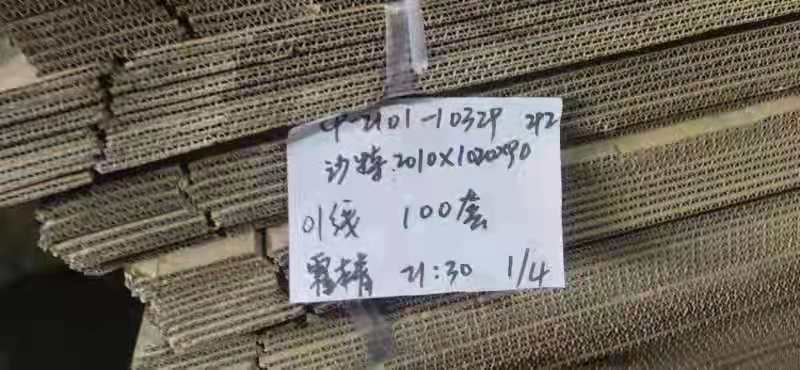 CP-2101-1032P 292
沙特:2010X1020X90
01线 100套
21:30 1/4